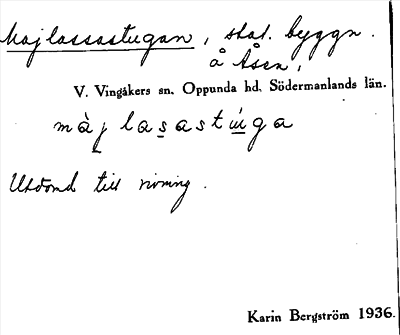 Majlassastugan, skol. byggn.
å Åsen,
V. Vingåkers sn. Oppunda hd. Södermanlands län.
màj lasastúga
Utdömd till rivning.
Karin Bergström 1936.